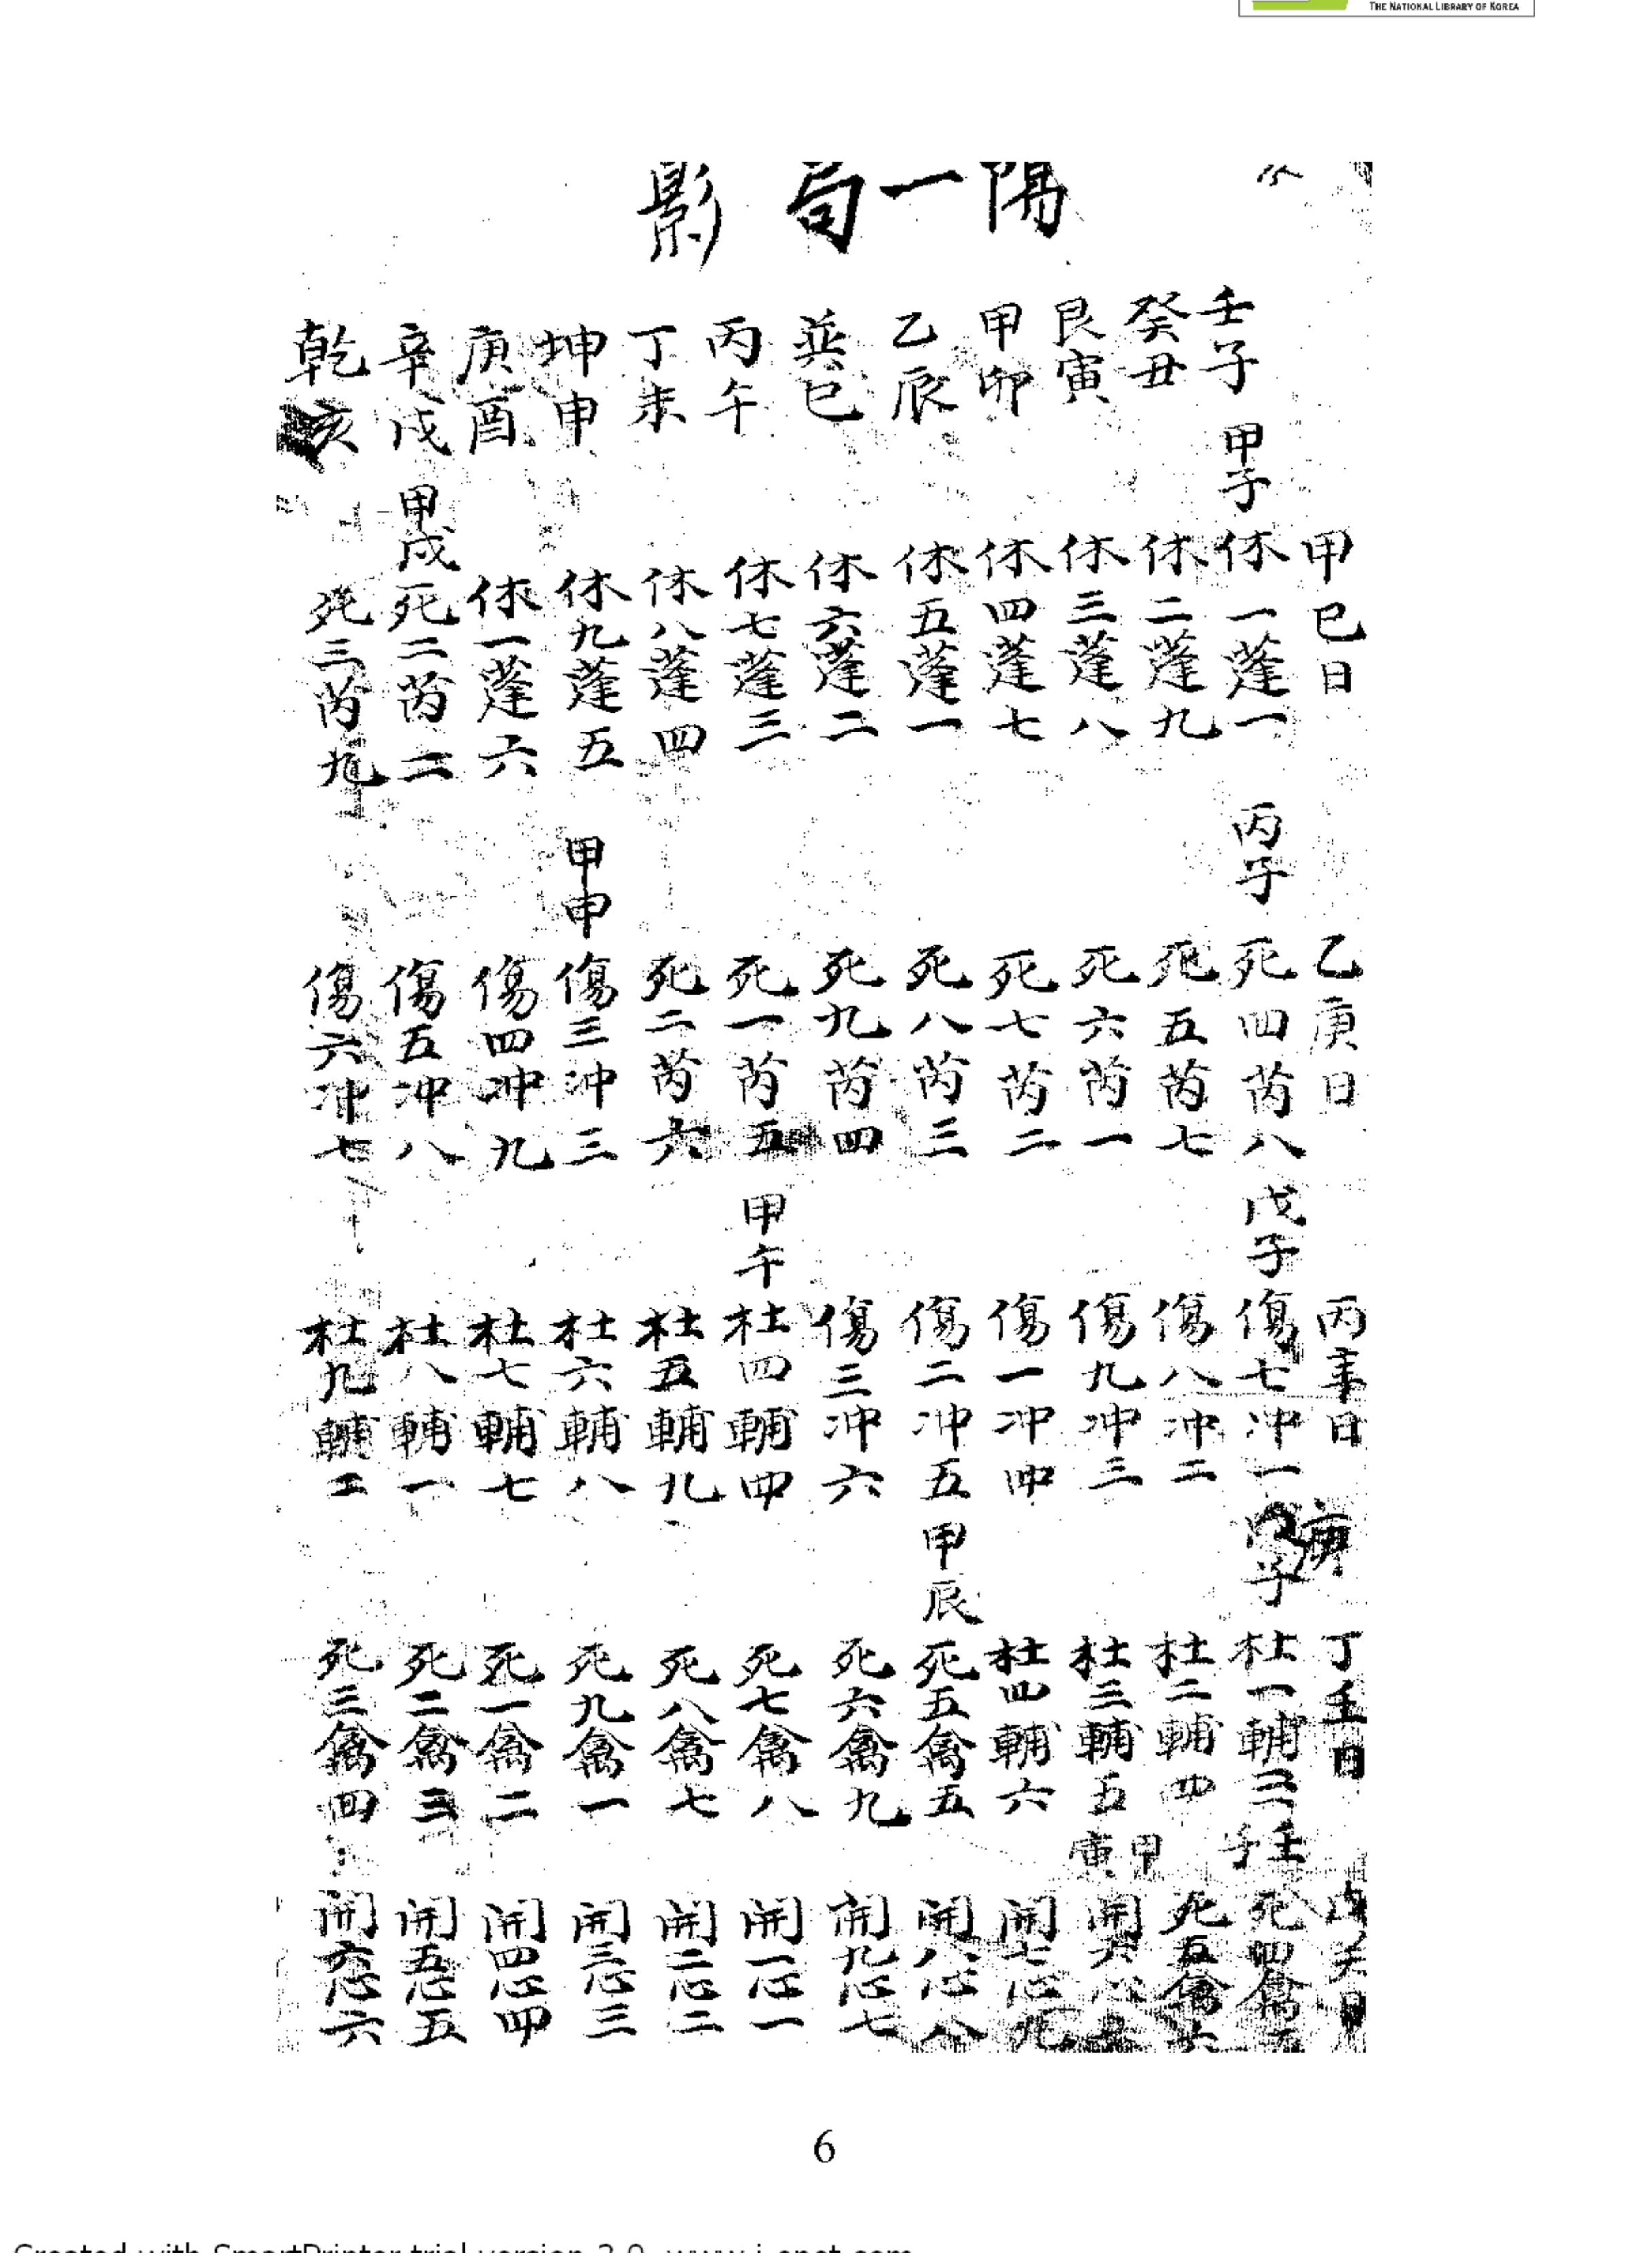 THE NATIONAL LIBRARY OF KOREA
陽一局 影
甲巳日
乙庚日
丙辛日
丁壬日
壬子 甲子 休一蓬一 丙子 死四芮八 戊子 傷七冲一 庚子 杜一輔三 壬子 死四禽
癸丑 休二蓬九 死五芮七 傷八冲二 杜二輔四 死五禽六
艮寅 休三蓬八 死六芮一 傷九冲三 杜三輔五 甲寅 開六心
甲卯 休四蓬七 死七芮二 傷一冲四 杜四輔六 開七心九
乙辰 休五蓬一 死八芮三 傷二冲五 甲辰 死五禽五 開八心八
巽巳 休六蓬二 死九芮四 傷三冲六 死六禽九 開九心七
丙午 休七蓬三 死一芮五 甲午 杜四輔四 死七禽八 開一心一
丁未 休八蓬四 死二芮六 杜五輔九 死八禽七 開二心二
坤申 休九蓬五 甲申 傷三冲三 杜六輔八 死九禽一 開三心三
庚酉 休一蓬六 傷四冲九 杜七輔七 死一禽二 開四心四
辛戌 甲戌 死二芮二 傷五冲八 杜八輔一 死二禽三 開五心五
乾亥 死三芮九 傷六冲七 杜九輔二 死三禽四 開六心六
6
Created with SmartPrinter trial version